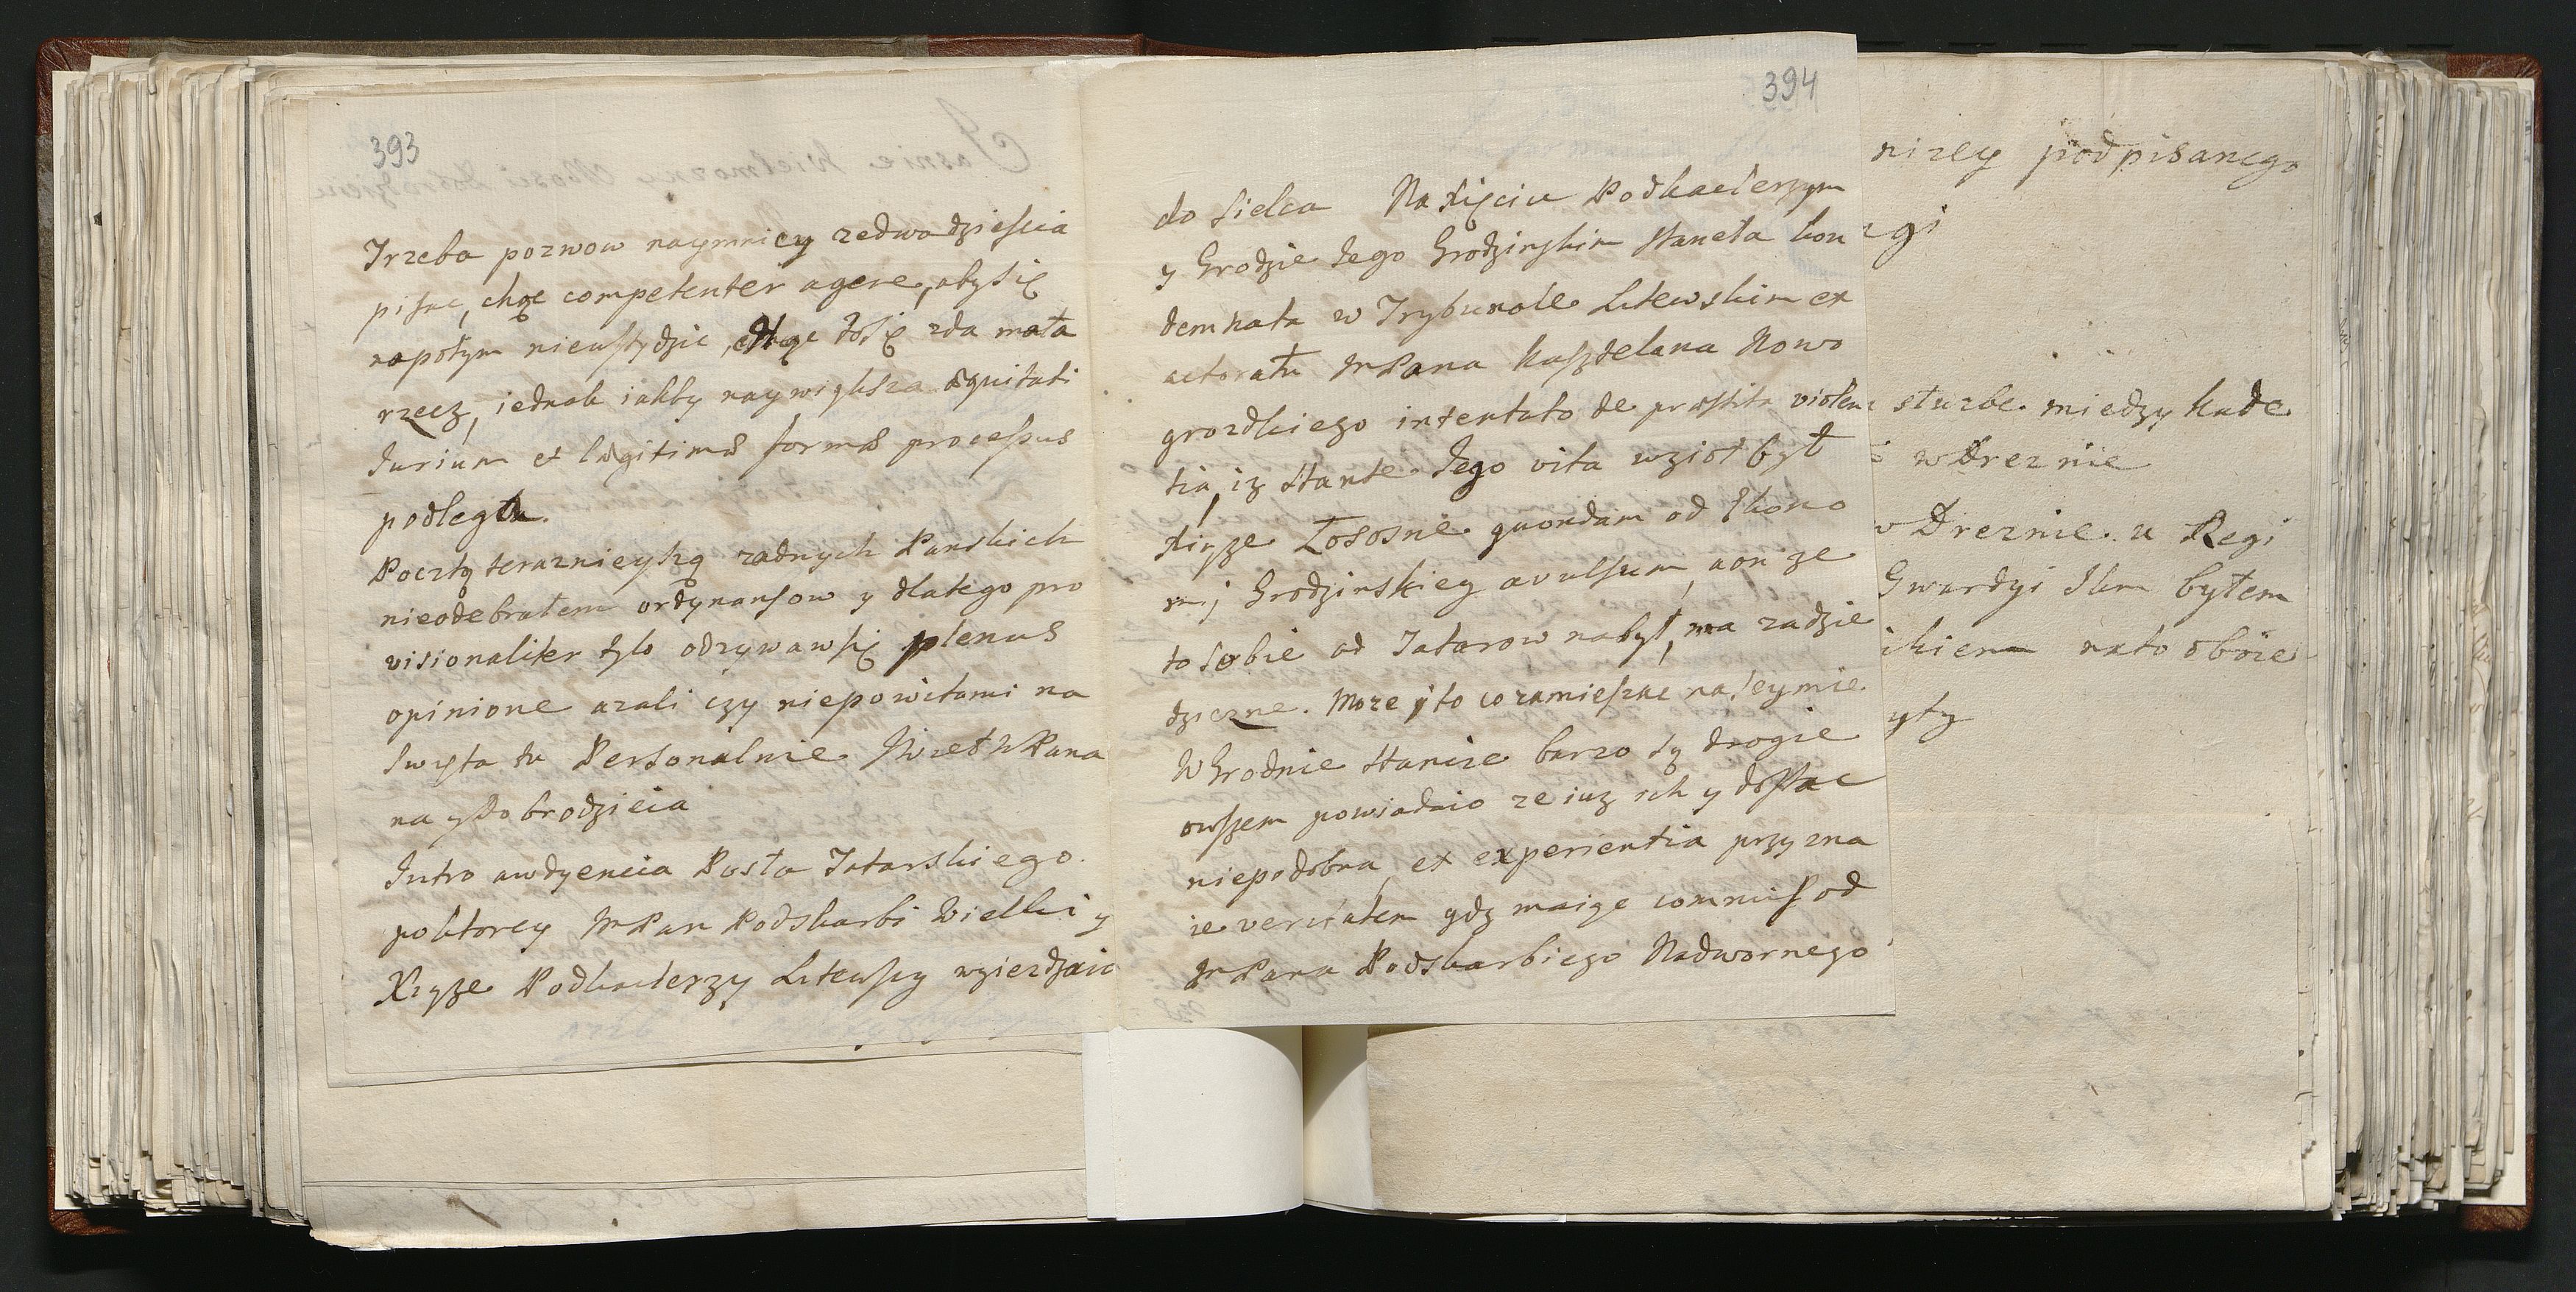 393
Trzeba pozwow naymniey zedwadziescia
pisac, chcę competenter agere, abysię
napotym niewstydzic, choc tosię zda mała
rzecz, iednak iakby naywiększa æquitati
Jurium et lægitimæ formæ processus
podlegta.
Pocztą teraznieyszą zadnych Panskich
nieodebrałem ordynansow y dlatego pro
visionaliter tylo odzywawsię plenus
opinione azali czy niepowitami na
Swięta tu Personalnie JWielWPana
na y Dobrodzieia
Jutro audyencia Posła Tatarskiego.
poktorey JmPan Podskarbi Wielki y
Xiąze Podkaclerzy Litewscy wyiezdzaio
394
do Sielca Na Xięciu Podkaclerzym
y Grodzie Jego Grodzinskim staneła kon
demnata w Trybunale Litewskim ex
actoratu JmPana Kasztelana Nowo
grodkiego intentato de præstita violen
tia, iz stante Jego vita wzioł był
Xiąze Łosośne quondam od Ekono
mij Grodzinskiey avulsum, a on ze
to sobie od Tatarow nabył, ma zadzie
dziczne. Moze y to co zamieszac na Seymie.
W Grodnie Stancie barzo są drogie
owszem powiadaio ze iuz ich y dostac
niepodobna, et experientia przyzna
ie veritatem gdy maige commiss od
JmPana Podskarbiego Nadwornego
nizey podpisanego
gi
słuzbe miedzy kade
w Dreznie
w Dreznie u Regi
Gwardyi Jkm byłem
ikiem nato obòie
yty